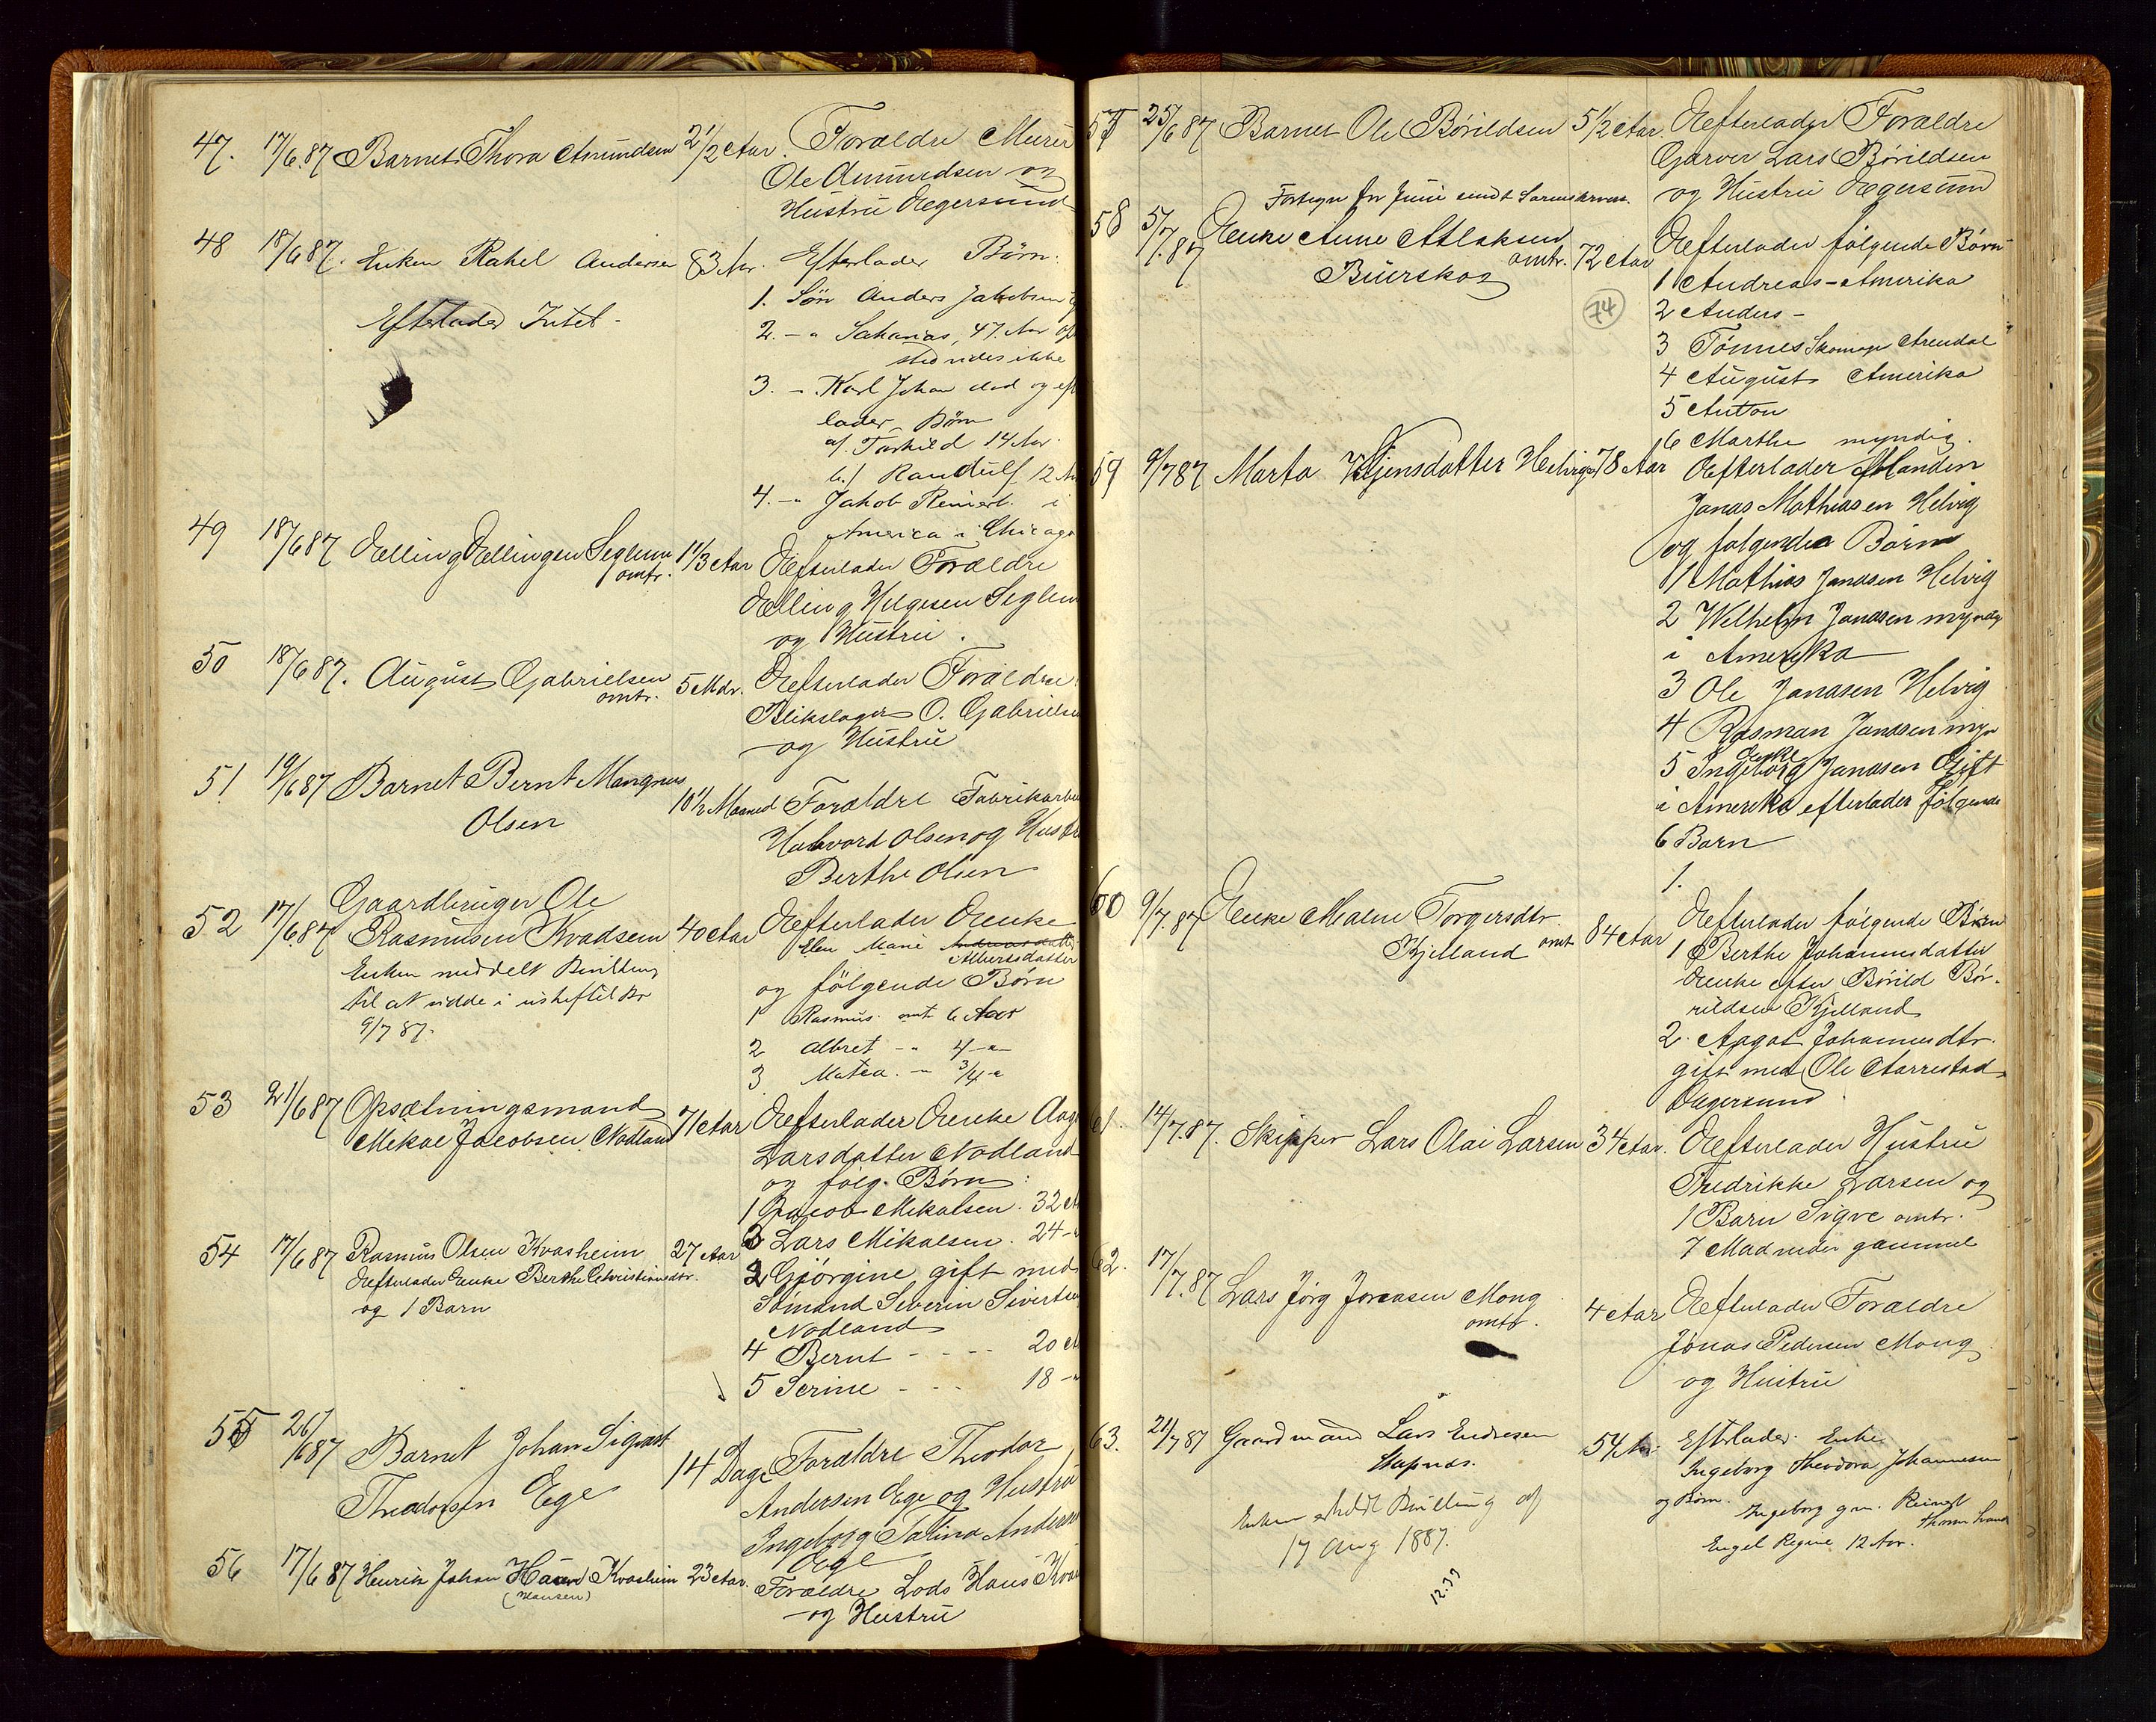 47. 17/6.87 Barnet Thora Amundsen 2 1/2 Aar. Forældre Murer
Ole Amundsen og
Hustru Egersund
48 18/6 87. Enken Rahel Andersen 83 Aar. Efterlader Børn:
Efterlader Intet.
1. Søn Anders Jakobsen
2. -" Sakarias, 47 Aar
sted vides ikke
3. - Karl Johan død og eft
lader Børn
a/ Torkild 14 Aar.
b./ Randulf 12
4. -" Jakob Reinert i
America i Chicago
49 18/6 87 Elling Ellingsen Seglem omtr. 1 1/3 Aar Efterlader Forældre
Elling Helgesen Seglem
og Hustru.
50 18/6 87. August Gabrielsen omtr. 5 Mdr. Efterlader Forældre
Blikslager O. Gabrielsen
og Hustru
51 19/6 87 Barnet Bernt Mangnus
Olsen 10 1/2 Maaned Forældre Fabrikarbei
Halvord Olsen og Hustru
Berthe Olsen
52 17/6 87 Gaardbruger Ole
Rasmusen Kvadsem 40 Aar Efterlader Enke
Elen Marie Andreasdatter
Albertsdatter
Enken meddelt Bevilling
til at sidde i uskiftet Bo
9/7 87.
og følgende Børn
1 Rasmus omt 6 Aar
2 Albret -" 4 -"
3 Matea. -" 3/4 -"
53 21/6 87 Opsætningsmand
Mikal Jacobsen Nodland 71 Aar Efterlader Enke
Larsdatter Nodland
og følg. Børn:
1 Jacob Mikalsen. 32
2 Lars Mikalsen. 24 -"
3 Gjørgine gift med
Sømand Severin Sivertsen
Nodland
4 Bernt - - - - 20
5 Serine - - - 18 -"
54 17/6 87 Rasmus Olsen Kvasheim 27 Aar
Efterlader Enke Berthe Christiansdtr.
og 1 Barn
55 20/6 87 Barnet Johan Sigvart
Theodorsen Ege 14 Dage Forældre Theodor
Andersen Ege og Hustru
Ingeborg Taline Andersen
Ege
56 17/6 87 Henrik Johan Kvasheim 23 Aar.
(Hansen)
Forældre Lods Hans
og Hustru
57 25/6 87 Barnet Ole Børildsen 5 1/2 Aar. Efterlader Forældre
Garver Lars Børildsen
og Hustru Egersund
58 5/7.87 Enke Anne Atlaksen
Buerskog omtr. 72 Aar
74
Efterlader følgende Børn
1 Andreas - Amerika
2 Anders -
3 Tønnes Skomager Arendal
4 August Amerika
5 Anton
6 Marthe myndig.
59 9/7 87 Marta Helvig 78 Aar Efterlader Manden
Jonas Mathiasen Helvig
og følgende Børn
1 Mathias Jonasen Helvig
2 Welhelm Jonasen myndig
i Amereka
3 Ole Jonasen Helvig
4 Rasman Jonasen myn
Enke
5 Ingeborg Jonasen Gift
i Amereka efterlader følgende
6 Barn
1.
60 9/7.87 Enke Malene Torgersdtr.
Kjelland omt 84 Aar Efterlader følgende Børn
1 Berthe Johannesdatter
Enke efter Børild Bør-
rildsen Kjelland
2. Aagot Johannesdtr.
gift med Ole Aarrestad
Egersund.
61. 14/7.87. Skipper Lars Olai Larsen 34 Aar. Efterlader Hustru
Fredrikke Larsen og
1 Barn Sigve omtr.
7 Maaneder gammel
62. 17/7.87 Lars Jørg Jonasen Mong
omtr. 4 Aar Efterlader Forældre
Jonas Pedersen Mong
og Hustru
63. 21/7 87 Gaardmand Lars Endresen
Stapnæs. 54 Aar Efterlader Enke
Ingeborg Theodora Johannesen
og Børn. Ingeborg gm. Reinert
Engel Regine 12 Aar.
Enken erholdt Bevilling af
17 Aug 1887.